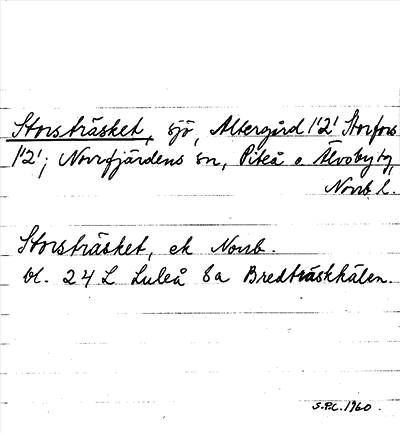 Storsträsket, sjö, Altergård 1'2' Storfors
1'2'; Norrfjärdens sn, Piteå o Älvsby tg,
Norrb l.
Storsträsket, ek Norrb.
bl. 24 L Luleå 8a Bredträskhälen.
S.P.C. 1960.